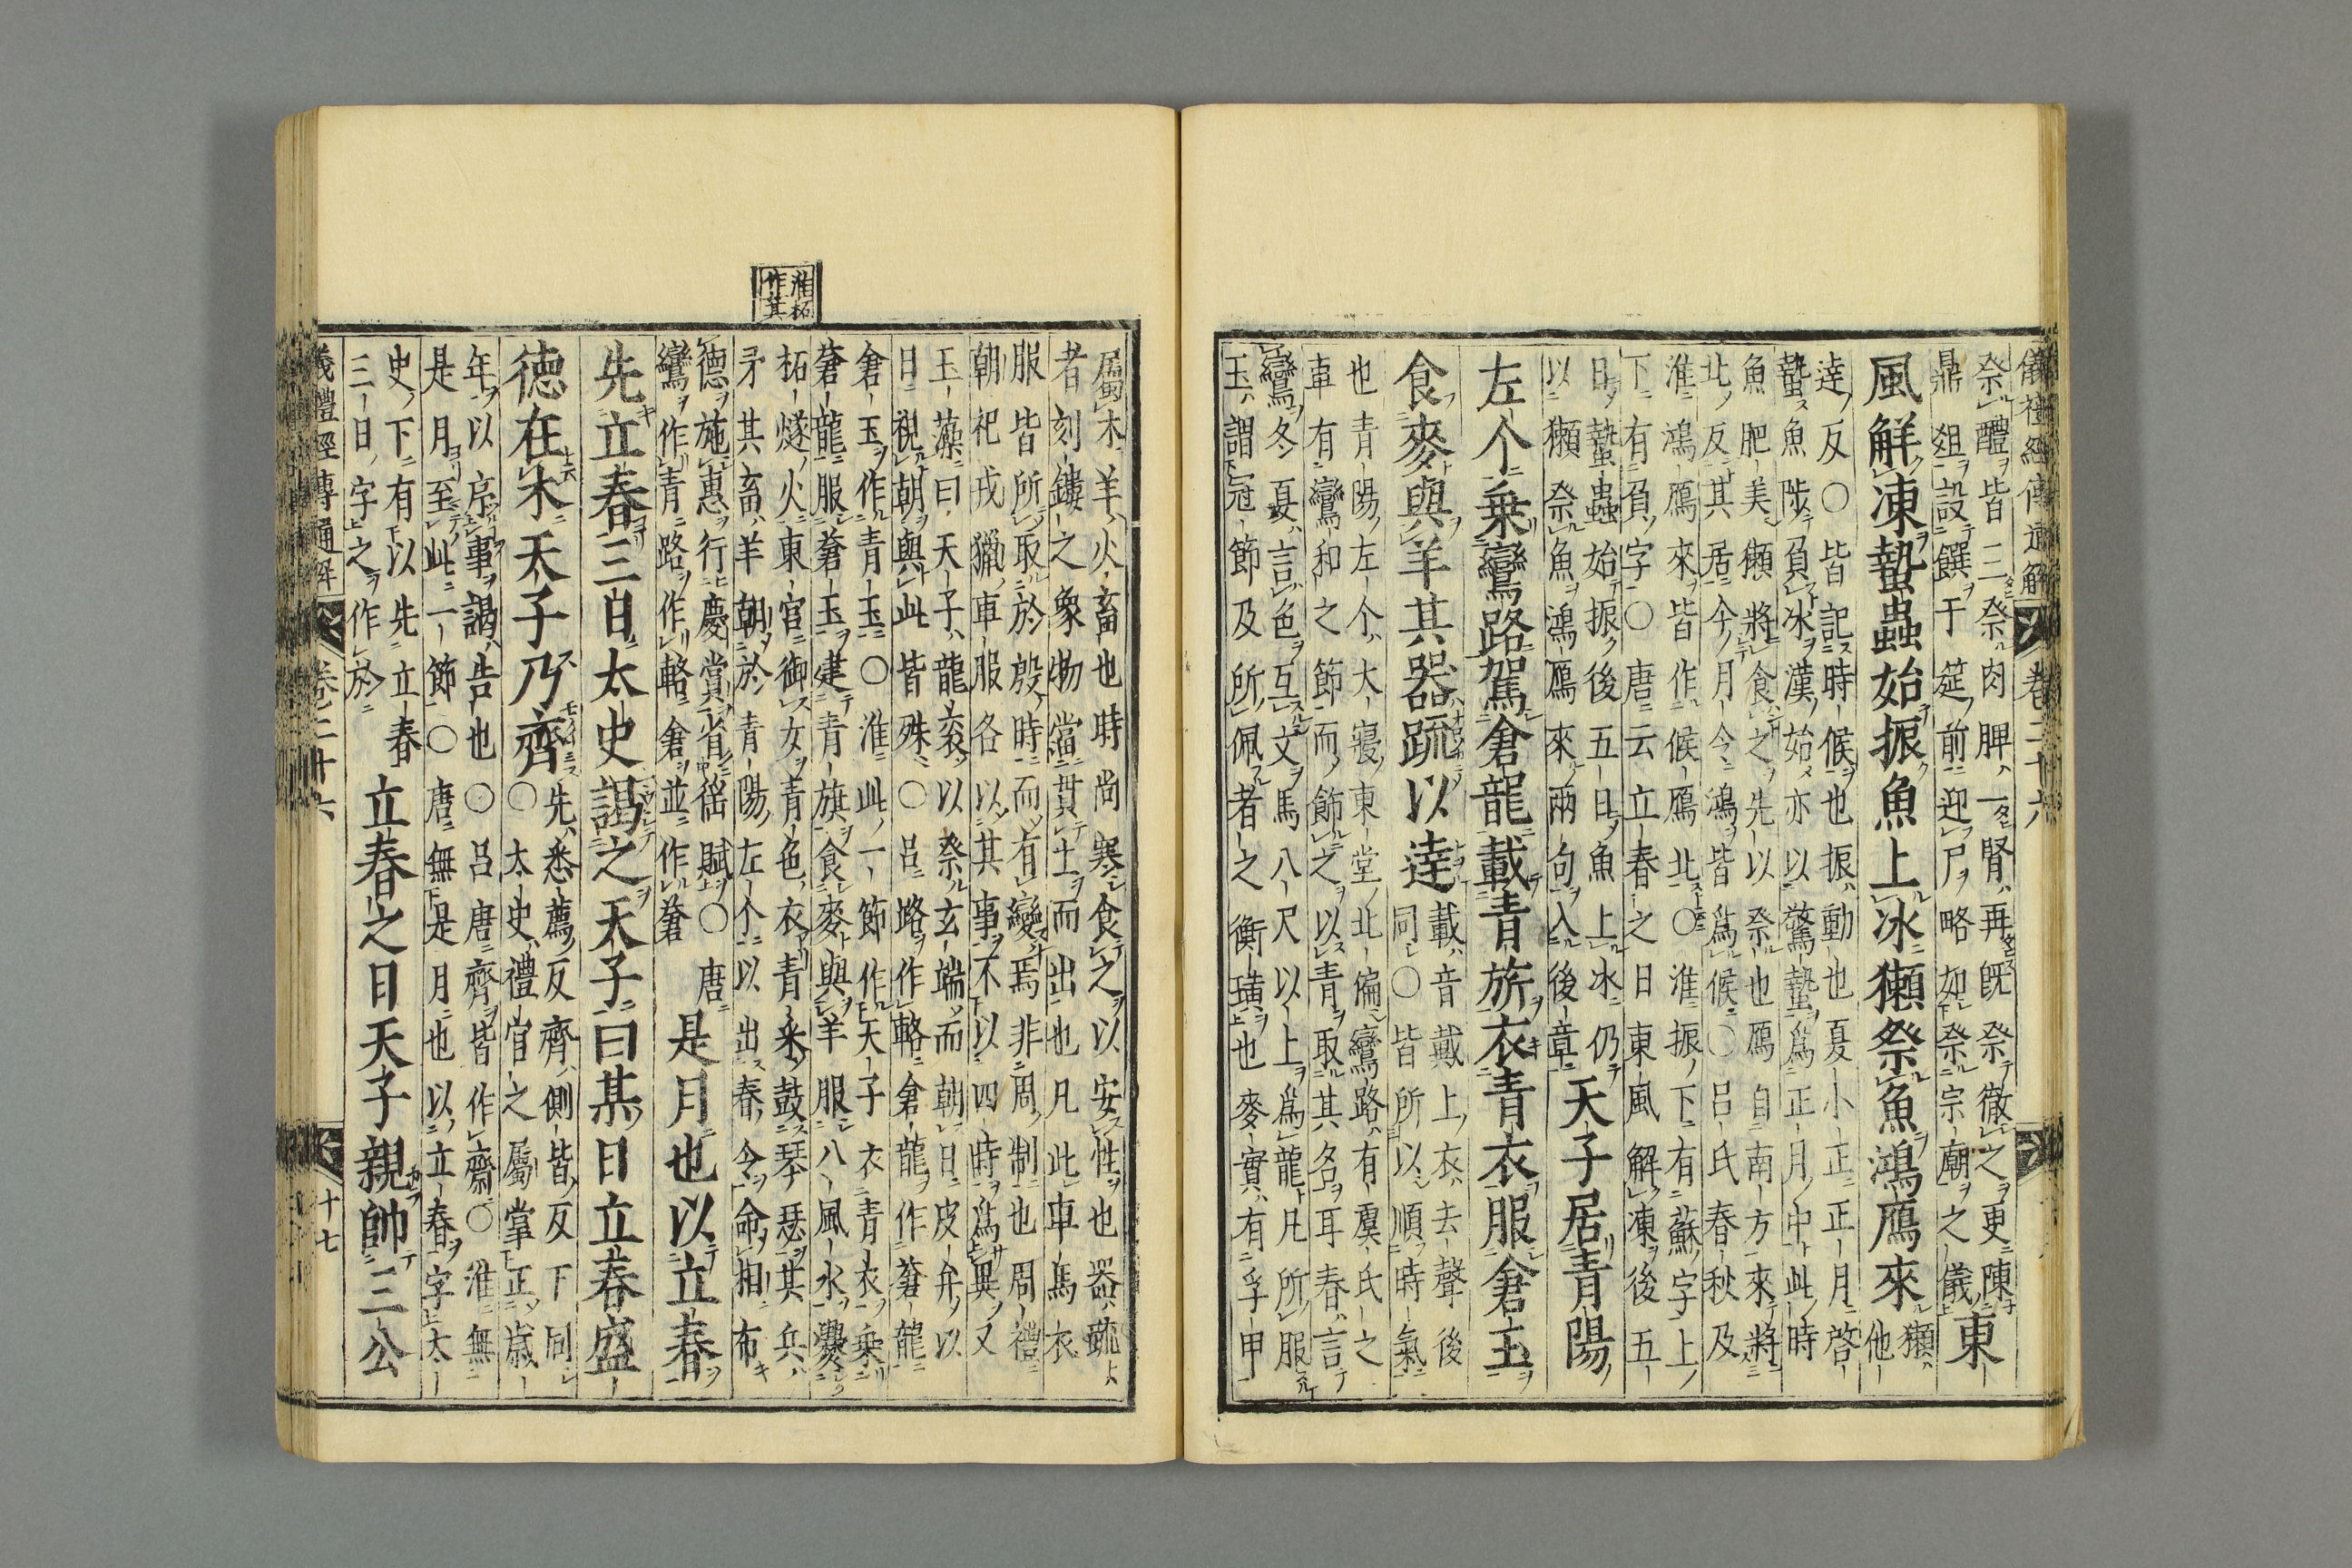 儀禮經傳通解 卷二十六
祭醴皆三祭肉脾一腎再既祭徹之更陳
鼎俎設饌于筵前迎尸略如祭宗廟之儀
東
風解凍蟄蟲始振魚上冰獺祭魚鴻鴈來
獺
他
達反○皆記時候也振動也夏小正正月啓
蟄魚陟負冰漢始亦以驚蟄爲正月中此時
魚肥美獺將食之先以祭也鴈自南方來將
北反其居今月令鴻皆爲候○呂氏春秋及
淮鴻鴈來皆作候鴈北○淮振下有蘇字上
下有負字○唐云立春之日東風解凍後五
日蟄蟲始振後五日魚上冰仍
以獺祭魚鴻鴈來兩句入後章
天子居青陽
左个乗鸞路駕倉龍載青旂衣青衣服倉玉
食麥與羊其器疏以達
載音戴上衣去聲後
同○皆所以順時氣
也青陽左个大寢東堂北偏鸞路有虞氏之
車有鸞和之節而飾之以青取其名耳春言
鸞冬夏言色互文馬八尺以上爲龍凡所服
玉謂冠節及所佩者之衡璜也麥實有孚甲
屬木羊火畜也時尚寒食之以安性也器疏
者刻鏤之象物當貫土而出也凡此車馬衣
服皆所取於殷時而有變焉非周制也周禮
朝祀戎獵車服各以其事不以四時爲異又
玉藻曰天子龍袞以祭玄端而朝日皮弁以
日視朝與此皆殊○呂路作輅倉龍作蒼龍
倉玉作青玉○淮此一節作天子衣青衣乗
蒼龍服蒼玉建青旗食麥與羊服八風水爨
柘燧火東宮御女青色衣青采鼓琴瑟其兵
矛其畜羊朝於青陽左个以出春令命相布
德施惠行慶賞省徭賦○唐
鸞作青路作輅倉並作蒼
是月也以立春
先立春三日太史謁之天子曰某日立春盛
徳在木天子乃齊
先悉薦反齊側皆反下同
○太史禮官之屬掌正歳
年以序事謁告也○呂唐齊皆作齋○淮無
是月至此一節○唐無是月也以立春字太
史下有以先立春
三日字之作於
立春之日天子親帥三公
儀禮經傳通解 卷二十六 十七
淮柘
作萁